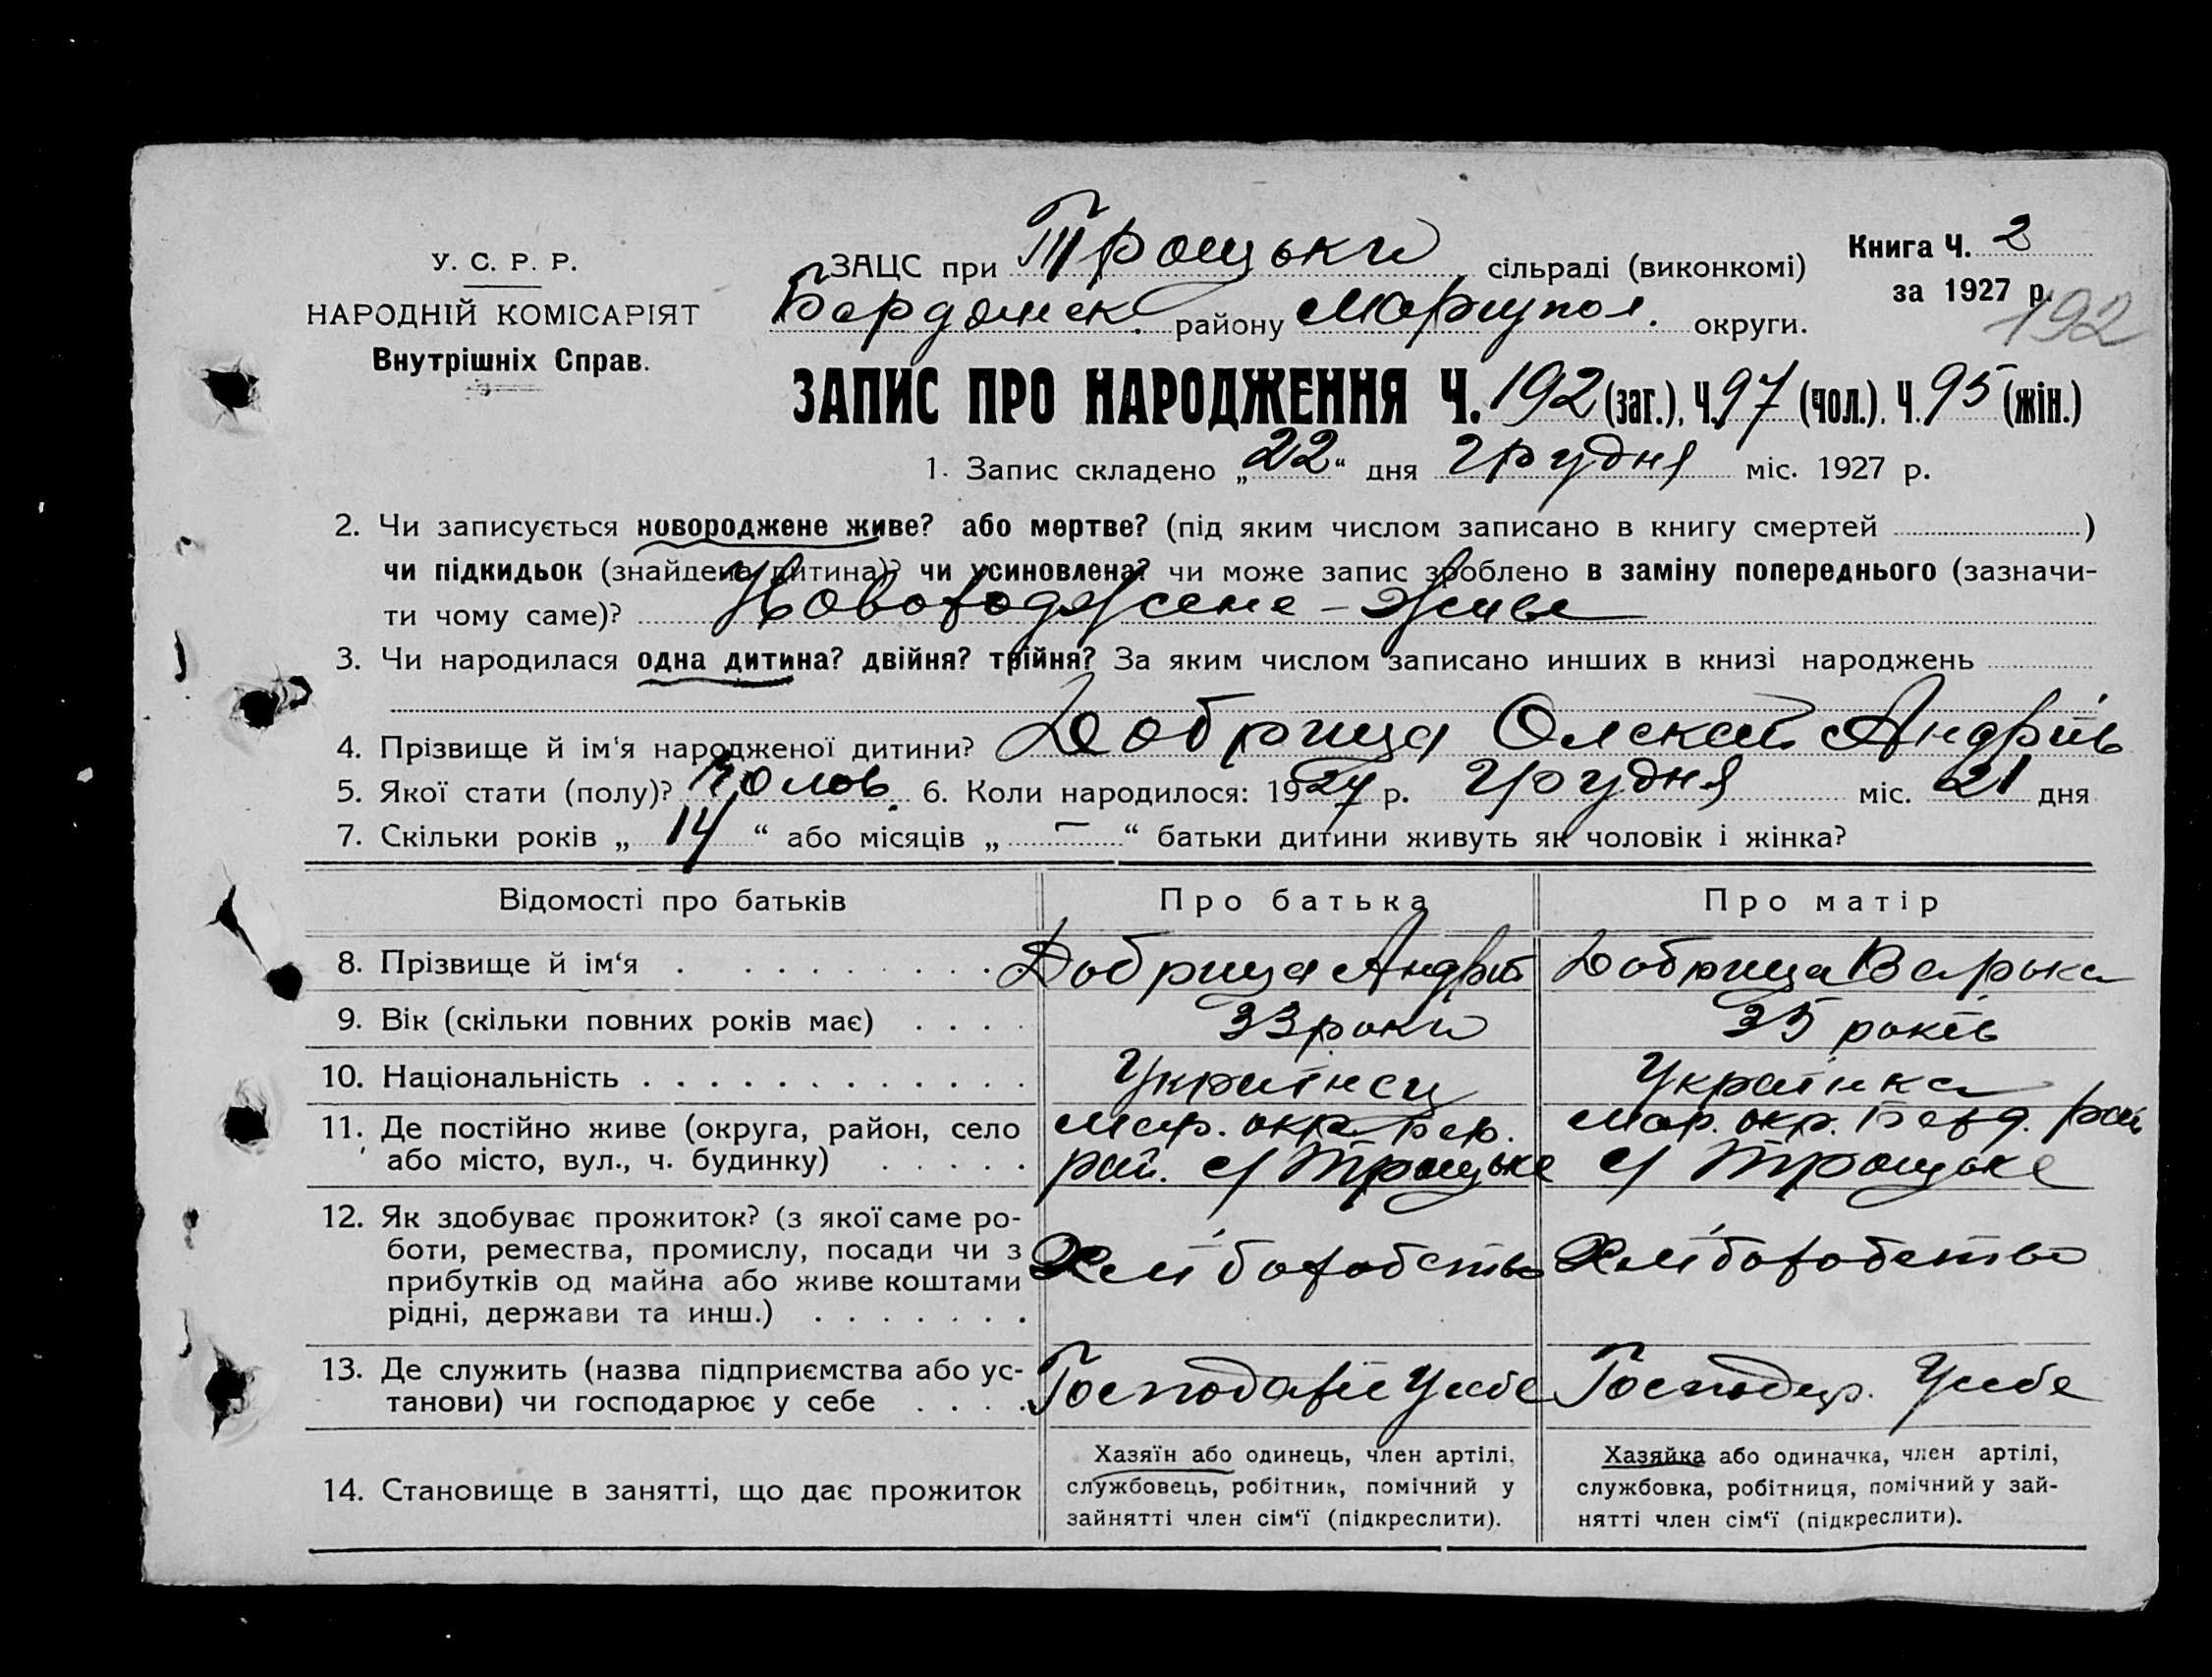 У. С. Р. Р.
НАРОДНІЙ КОМІСАРІЯТ
Внутрішніх Справ.
ЗАЦС при Троцьки сільраді (виконкомі)
Бердянск. району Маріупол. округи.
Книга Ч. 2
за 1927 р.
192
ЗАПИС ПРО НАРОДЖЕННЯ Ч. 192 (заг.), Ч. 97 (чол.), Ч. 95 (жін.)
1. Запис складено „22“ дня Грудня міс. 1927 р.
2. Чи записується новороджене живе? або мертве? (під яким числом записано в книгу смертей )
чи підкидьок (знайдена дитина)? чи усиновлена? чи може запис зроблено в заміну попереднього (зазначи-
ти чому саме)? Новороджене - живе
3. Чи народилася одна дитина? двійня? трійня? За яким числом записано инших в книзі народжень
4. Прізвище й ім‘я народженої дитини? Добрица Андріїв
5. Якої стати (полу)? Чолов. 6. Коли народилося: 1927 р. Грудня міс. 21 дня
7. Скільки років „ 14 “ або місяців „ — “ батьки дитини живуть як чоловік і жінка?
Відомості про батьків Про батька Про матір
8. Прізвище й ім‘я Добрица Андрій Добрица Варька
9. Вік (скільки повних років має) 33 роки 35 років
10. Національність Українец Українка
11. Де постійно живе (округа, район, село Мар. окр. Бер. Мар. окр. Берд. рай
або місто, вул., ч. будинку) рай. с/ Троцьке с/ Троцьке
12. Як здобуває прожиток? (з якої саме ро-
боти, ремества, промислу, посади чи з Хліборобство Хліборобство
прибутків од майна або живе коштами
рідні, держави та инш.)
13. Де служить (назва підприємства або ус- Господарює Усебе Господар. Усебе
танови) чи господарює у себе
14. Становище в занятті, що дає прожиток
Хазяїн або одинець, член артілі,
службовець, робітник, помічний у
зайнятті член сім‘ї (підкреслити).
Хазяйка або одиначка, член артілі,
службовка, робітниця, помічний у зай-
нятті член сім‘ї (підкреслити).